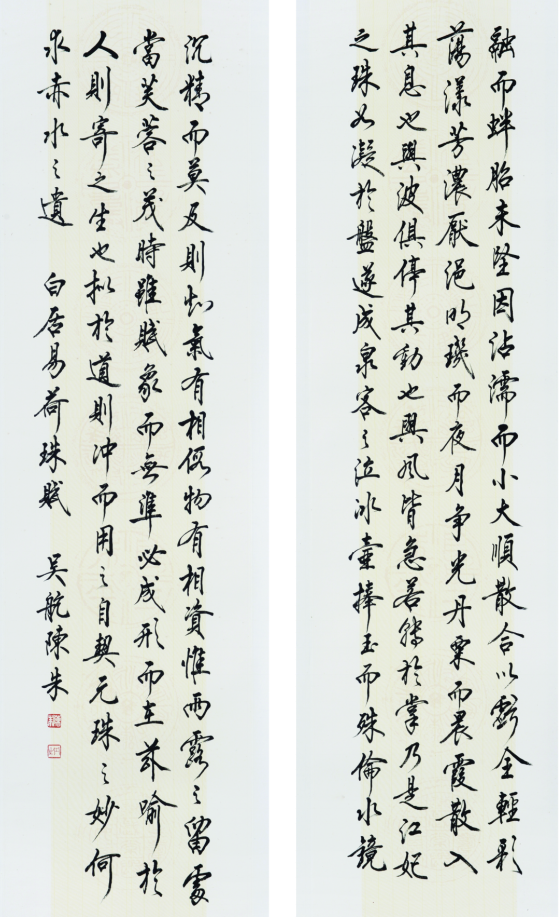 融而蚌胎未堅因沾濡而小大順散合以虧全輕彩
蕩漾芳濃厭浥明璣而夜月爭光丹粟而晨霞散入
其息也與波俱停其動也與風皆急若轉於掌乃是江妃
之珠如凝於盤遂成泉客之泣冰壺捧玉而殊倫水鏡
沉精而莫及則知氣有相假物有相資惟雨露之留處
當芙蓉之茂時雖賦象而無準必成形而在茲喻於
人則寄之生也擬於道則冲而用之自契元珠之妙何
求赤水之遺 白居易荷珠賦 吳航陳朱